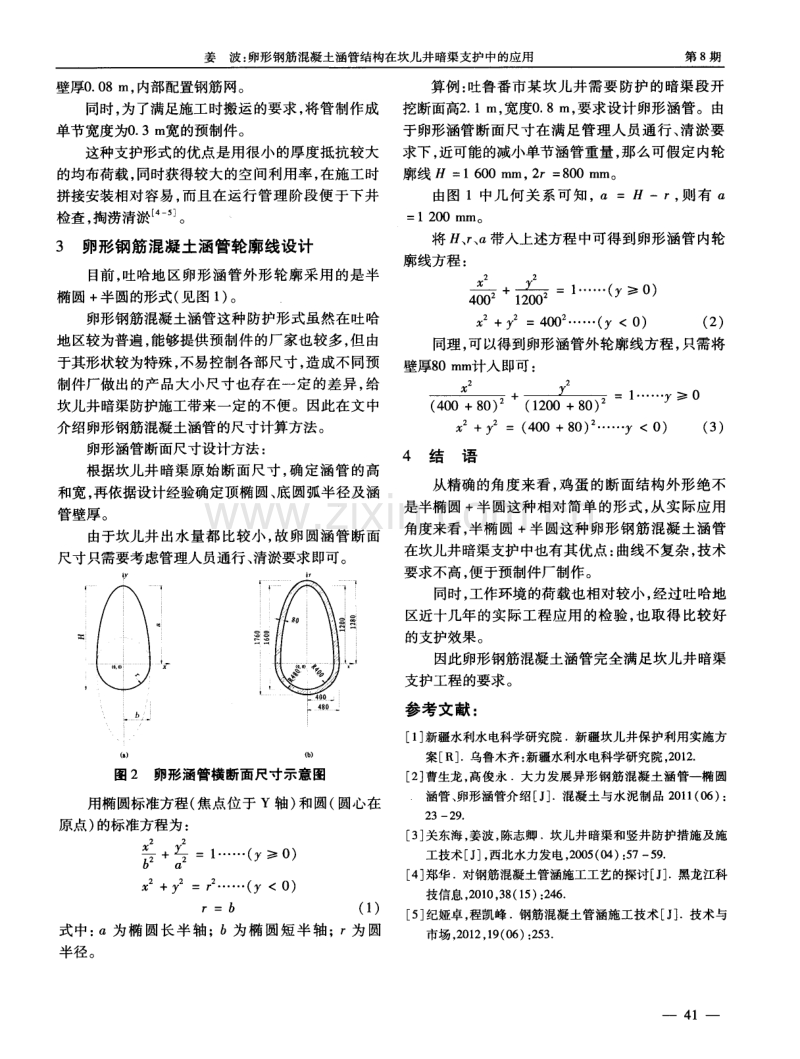 姜 波:卵形钢筋混凝土涵管结构在坎儿井暗渠支护中的应用 第8期
壁厚0.08 m,内部配置钢筋网。
同时,为了满足施工时搬运的要求,将管制作成
单节宽度为0.3 m宽的预制件。
这种支护形式的优点是用很小的厚度抵抗较大
的均布荷载,同时获得较大的空间利用率,在施工时
拼接安装相对容易,而且在运行管理阶段便于下井
检查,掏涝清淤[4-5]。
3 卵形钢筋混凝土涵管轮廓线设计
目前,吐哈地区卵形涵管外形轮廓采用的是半
椭圆+半圆的形式(见图1)。
卵形钢筋混凝土涵管这种防护形式虽然在吐哈
地区较为普遍,能够提供预制件的厂家也较多,但由
于其形状较为特殊,不易控制各部尺寸,造成不同预
制件厂做出的产品大小尺寸也存在一定的差异,给
坎儿井暗渠防护施工带来一定的不便。因此在文中
介绍卵形钢筋混凝土涵管的尺寸计算方法。
卵形涵管断面尺寸设计方法:
根据坎儿井暗渠原始断面尺寸,确定涵管的高
和宽,再依据设计经验确定顶椭圆、底圆弧半径及涵
管壁厚。
由于坎儿井出水量都比较小,故卵圆涵管断面
尺寸只需要考虑管理人员通行、清淤要求即可。
y
H
a
x
r
b
(a)
y
80
1760
1600
1200
1280
x
R480
R400
400
480
(b)
图2 卵形涵管横断面尺寸示意图
用椭圆标准方程(焦点位于 Y 轴)和圆(圆心在
原点)的标准方程为:
x²/b² + y²/a² = 1……(y ≥ 0)
x² + y² = r²……(y < 0)
r = b (1)
式中: a 为椭圆长半轴; b 为椭圆短半轴; r 为圆
半径。
算例:吐鲁番市某坎儿井需要防护的暗渠段开
挖断面高2.1 m,宽度0.8 m,要求设计卵形涵管。由
于卵形涵管断面尺寸在满足管理人员通行、清淤要
求下,近可能的减小单节涵管重量,那么可假定内轮
廓线 H =1 600 mm, 2r =800 mm。
由图 1 中几何关系可知, a = H - r ,则有 a
=1 200 mm。
将 H、r、a 带入上述方程中可得到卵形涵管内轮
廓线方程:
x²/400² + y²/1200² = 1……(y ≥ 0)
x² + y² = 400²……(y < 0) (2)
同理,可以得到卵形涵管外轮廓线方程,只需将
壁厚80 mm计入即可:
x²/(400 + 80)² + y²/(1200 + 80)² = 1……y ≥ 0
x² + y² = (400 + 80)²……y < 0) (3)
4 结 语
从精确的角度来看,鸡蛋的断面结构外形绝不
是半椭圆+半圆这种相对简单的形式,从实际应用
角度来看,半椭圆+半圆这种卵形钢筋混凝土涵管
在坎儿井暗渠支护中也有其优点:曲线不复杂,技术
要求不高,便于预制件厂制作。
同时,工作环境的荷载也相对较小,经过吐哈地
区近十几年的实际工程应用的检验,也取得比较好
的支护效果。
因此卵形钢筋混凝土涵管完全满足坎儿井暗渠
支护工程的要求。
参考文献:
[1]新疆水利水电科学研究院. 新疆坎儿井保护利用实施方
案[R]. 乌鲁木齐:新疆水利水电科学研究院,2012.
[2]曹生龙,高俊永. 大力发展异形钢筋混凝土涵管—椭圆
涵管、卵形涵管介绍[J]. 混凝土与水泥制品 2011(06):
23-29.
[3]关东海,姜波,陈志卿. 坎儿井暗渠和竖井防护措施及施
工技术[J],西北水力发电,2005(04):57-59.
[4]郑华. 对钢筋混凝土管涵施工工艺的探讨[J]. 黑龙江科
技信息,2010,38(15):246.
[5]纪娅卓,程凯峰. 钢筋混凝土管涵施工技术[J]. 技术与
市场,2012,19(06):253.
— 41 —